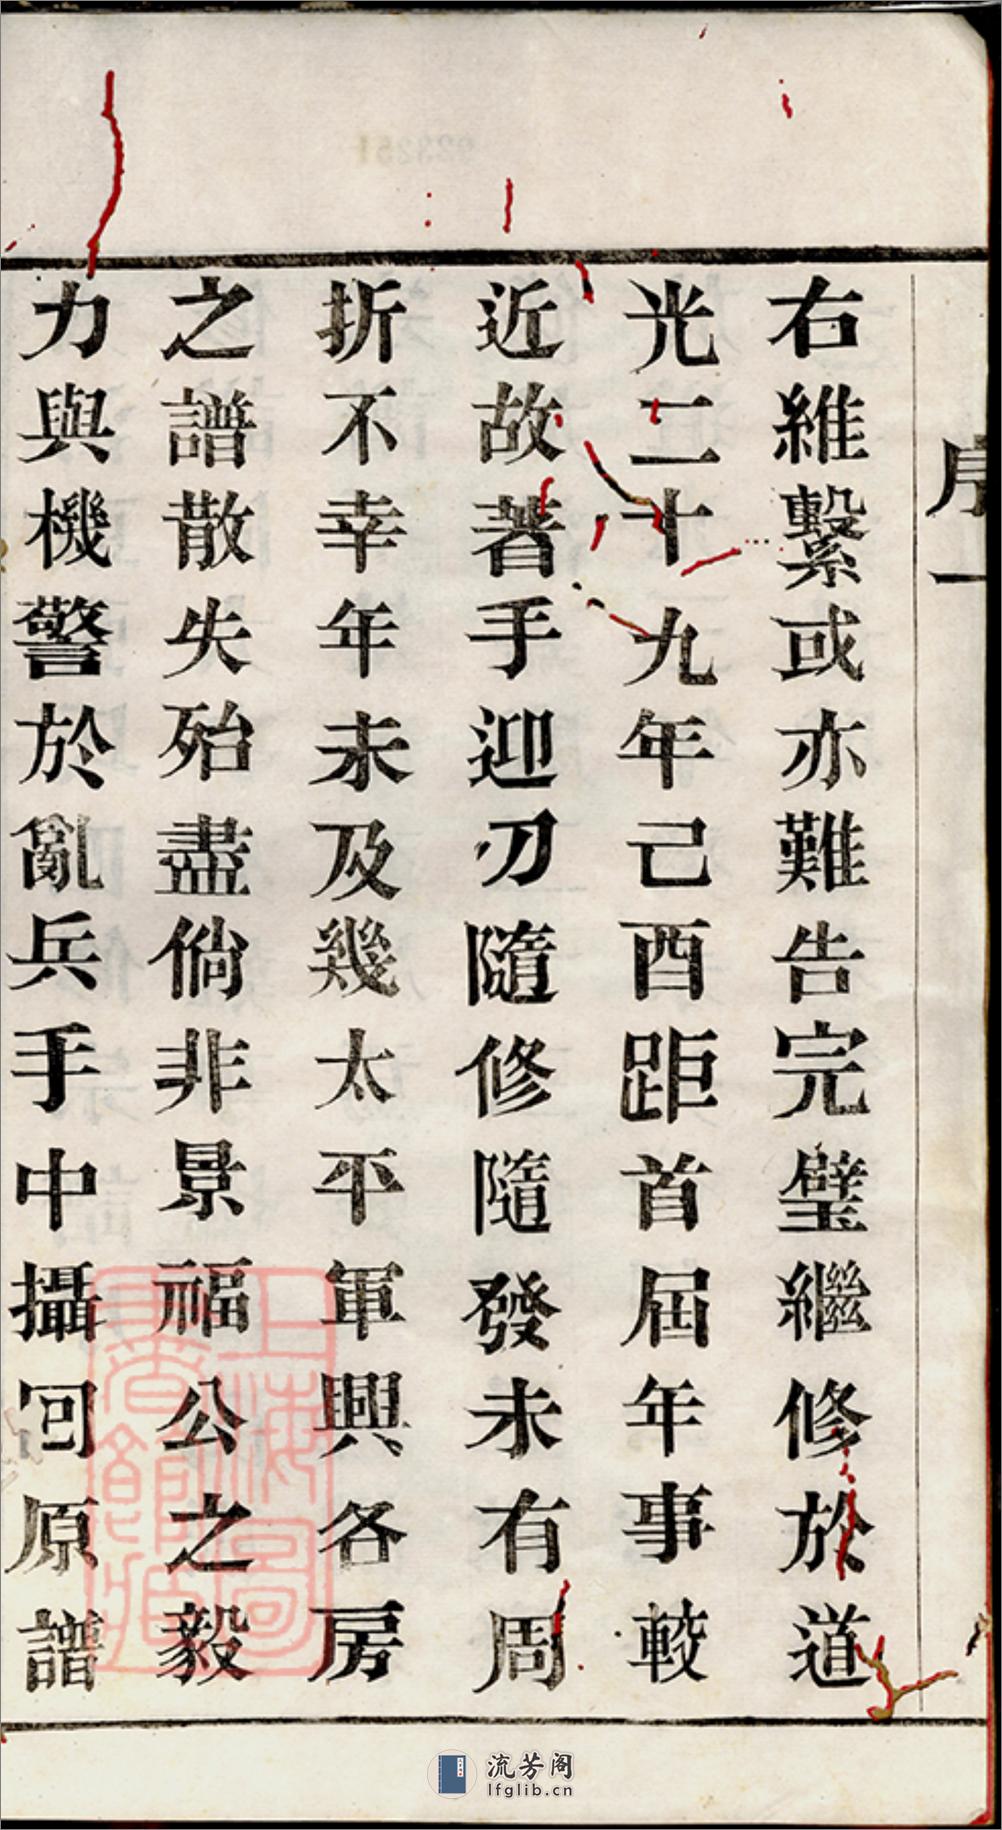 序一
右維繫或亦難告完璧繼修於道
光二十九年己酉距首屆年事較
近故著手迎刀隨修隨發未有周
折不幸年未及幾太平軍興各房
之譜散失殆盡倘非景福公之毅
力與機警於亂兵手中攝回原譜
上海圖
書館藏
流芳阁
lfglib.cn